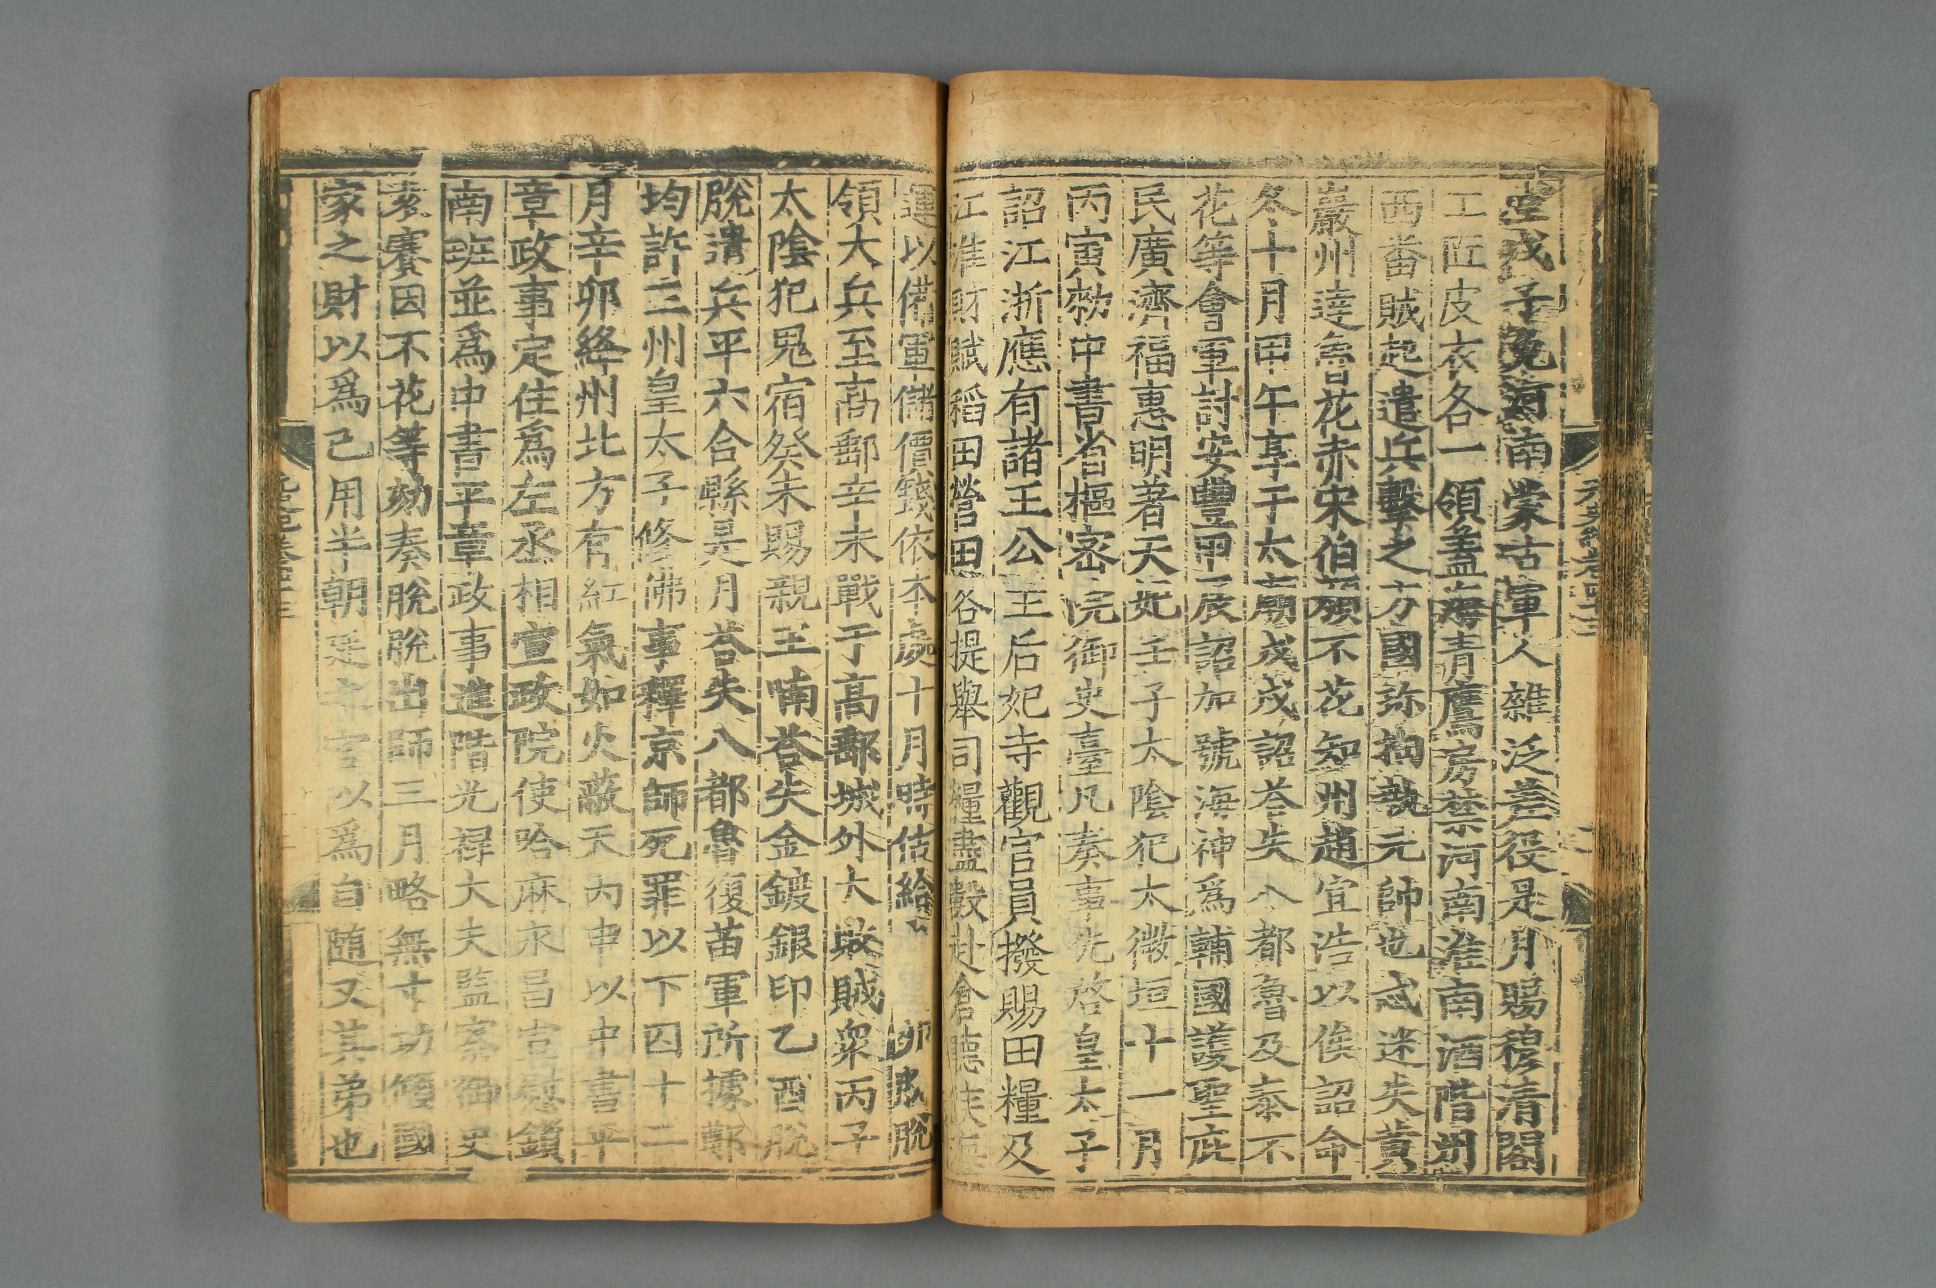 戌子免河南蒙古軍人雜泛差役是月賜穆清閣
工匠皮衣各一領盖海青鷹房禁河南淮南酒階州
西番賊起遣兵擊之方國珎拘執元帥也忒迷失黄
巖州達魯花赤宋伯顔不花知州趙宜浩以俟詔命
冬十月甲午享于太廟戊戌詔荅失八都魯及泰不
花等會軍討安豐甲辰詔加號海神爲輔國護聖庇
民廣濟福惠明著天妃壬子太陰犯太微垣十一月
丙寅勑中書省樞密院御史臺凡奏事先啓皇太子
詔江浙應有諸王公主后妃寺觀官員撥賜田糧及
江淮財賦稻田營田各提舉司糧盡數赴倉聽候海
運以備軍儲價錢依本處十月時估給 卯脫脫
領大兵至高郵辛未戰于高郵城外大敗賊衆丙子
太陰犯鬼宿癸未賜親王喃荅失金鍍銀印乙酉脫
脫遣兵平六合縣是月荅失八都魯復苗軍所據鄭
均許三州皇太子修佛事釋京師死罪以下囚十二
月辛卯絳州北方有紅氣如火蔽天丙申以中書平
章政事定住爲左丞相宣政院使哈麻永昌宣慰鎖
南班並爲中書平章政事進階光祿大夫監察御史
袁賽因不花等劾奏脫脫出師三月略無寸功傾國
家之財以爲己用半朝廷之官以爲自隨又其弟也
元史卷四十三